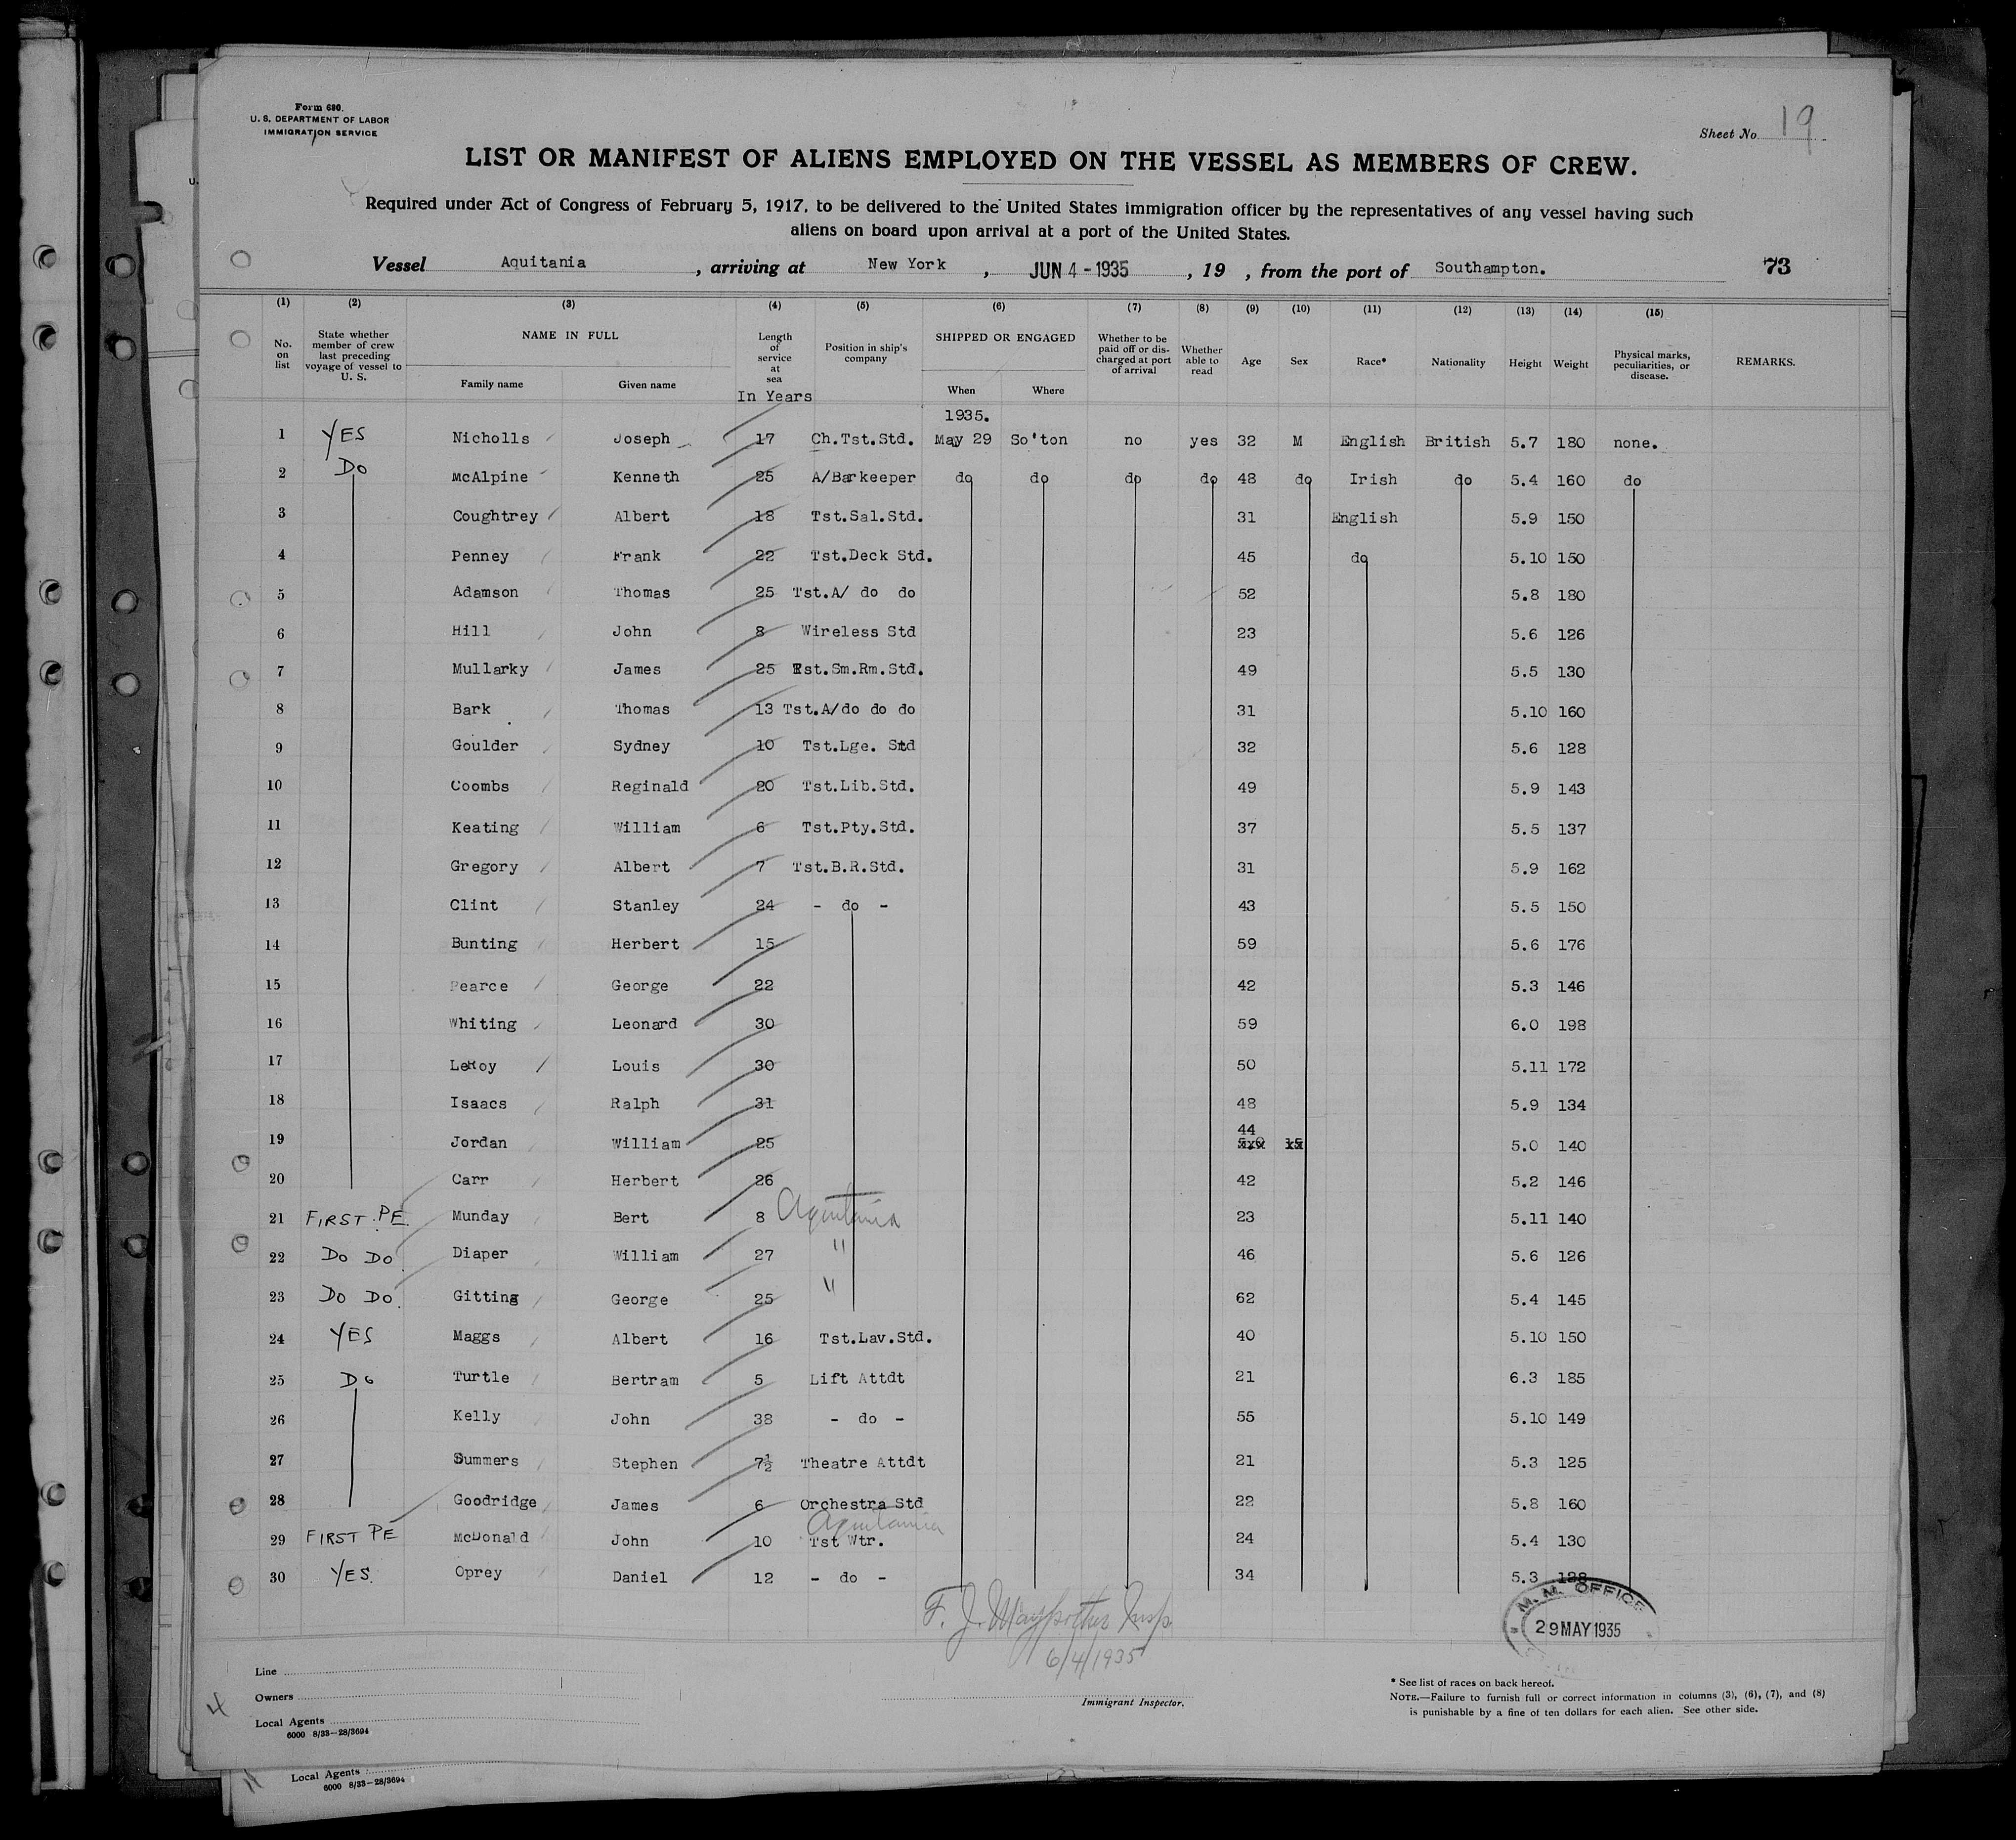 Form 680.
U. S. DEPARTMENT OF LABOR
IMMIGRATION SERVICE
Sheet No. 19
LIST OR MANIFEST OF ALIENS EMPLOYED ON THE VESSEL AS MEMBERS OF CREW.
Required under Act of Congress of February 5, 1917, to be delivered to the United States immigration officer by the representatives of any vessel having such
aliens on board upon arrival at a port of the United States.
Vessel Aquitania, arriving at New York, JUN 4 - 1935, 19 , from the port of Southampton. 73
(1) (2) (3) (4) (5) (6) (7) (8) (9) (10) (11) (12) (13) (14) (15)
No. on list State whether member of crew last preceding voyage of vessel to U. S. NAME IN FULL Family name Given name Length of service at sea In Years Position in ship's company SHIPPED OR ENGAGED When Where Whether to be paid off or discharged at port of arrival Whether able to read Age Sex Race* Nationality Height Weight Physical marks, peculiarities, or disease. REMARKS.
1935.
1 YES Nicholls Joseph 17 Ch.Tst.Std. May 29 So'ton no yes 32 M English British 5.7 180 none.
2 Do McAlpine Kenneth 25 A/Barkeeper do do do do 48 do Irish do 5.4 160 do
3 Coughtrey Albert 18 Tst.Sal.Std. 31 English 5.9 150
4 Penney Frank 22 Tst.Deck Std. 45 do 5.10 150
5 Adamson Thomas 25 Tst.A/ do do 52 5.8 180
6 Hill John 8 Wireless Std 23 5.6 126
7 Mullarky James 25 Tst.Sm.Rm.Std. 49 5.5 130
8 Bark Thomas 13 Tst.A/do do do 31 5.10 160
9 Goulder Sydney 10 Tst.Lge. Std 32 5.6 128
10 Coombs Reginald 20 Tst.Lib.Std. 49 5.9 143
11 Keating William 6 Tst.Pty.Std. 37 5.5 137
12 Gregory Albert 7 Tst.B.R.Std. 31 5.9 162
13 Clint Stanley 24 - do - 43 5.5 150
14 Bunting Herbert 15 59 5.6 176
15 Pearce George 22 42 5.3 146
16 Whiting Leonard 30 59 6.0 198
17 LeRoy Louis 30 50 5.11 172
18 Isaacs Ralph 31 48 5.9 134
19 Jordan William 25 44 5.0 140
20 Carr Herbert 26 42 5.2 146
21 FIRST PE. Munday Bert 8 Aquitania 23 5.11 140
22 Do Do. Diaper William 27 " 46 5.6 126
23 Do Do. Gitting George 25 " 62 5.4 145
24 YES Maggs Albert 16 Tst.Lav.Std. 40 5.10 150
25 Do Turtle Bertram 5 Lift Attdt 21 6.3 185
26 Kelly John 38 - do - 55 5.10 149
27 Summers Stephen 7½ Theatre Attdt 21 5.3 125
28 Goodridge James 6 Orchestra Std 22 5.8 160
Aquitania
29 FIRST PE McDonald John 10 Tst Wtr. 24 5.4 130
30 YES. Oprey Daniel 12 - do - 34 5.3 128
M. M. OFFICE
29 MAY 1935
F. J. Insp
6/4/1935
Immigrant Inspector.
Line
Owners
Local Agents
6000 8/33-28/3694
* See list of races on back hereof.
NOTE.—Failure to furnish full or correct information in columns (3), (6), (7), and (8)
is punishable by a fine of ten dollars for each alien. See other side.
Local Agents
6000 8/33-28/3694